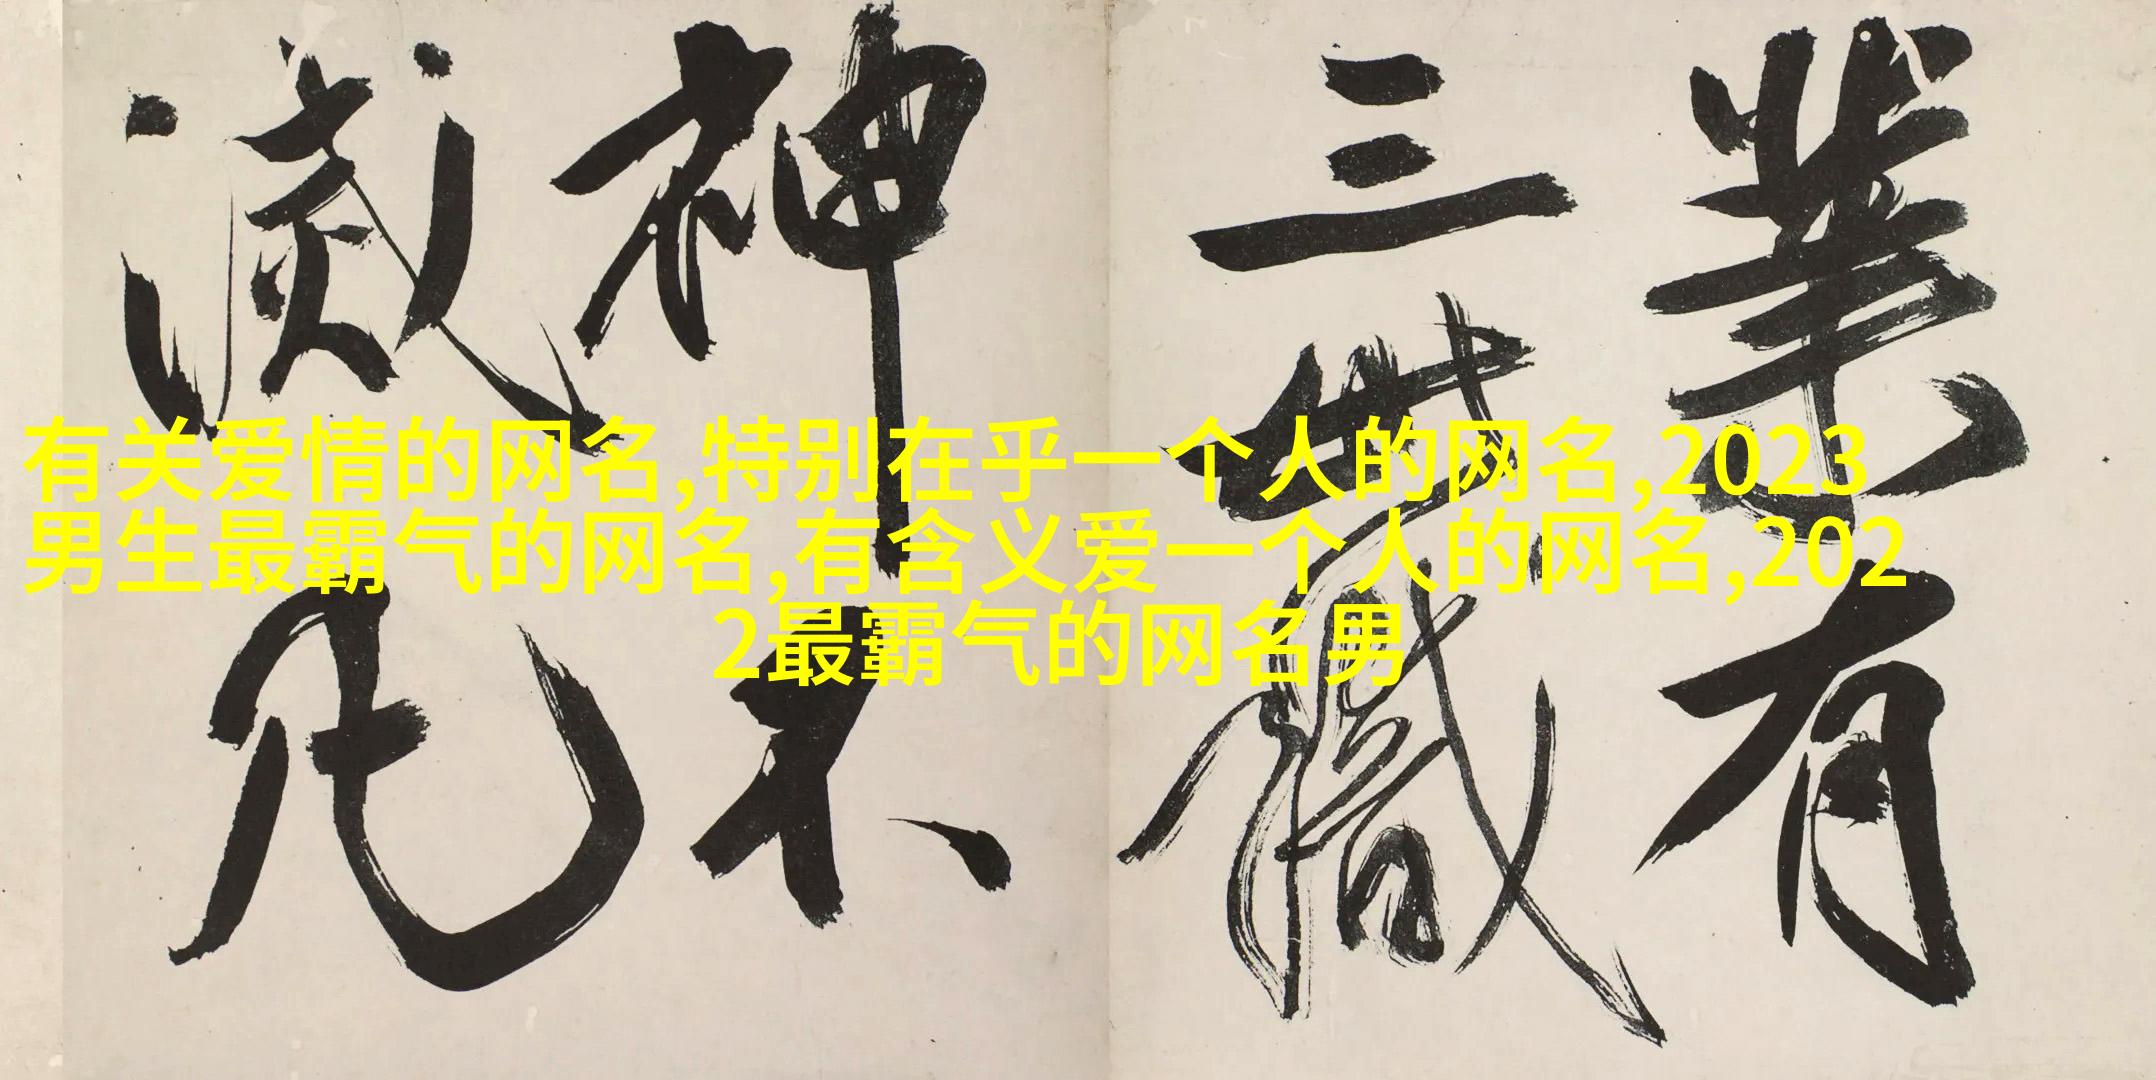 業有
三世職
神不
滅凡
有关爱情的网名,特别在乎一个人的网名,2023
男生最霸气的网名,有含义爱一个人的网名,202
2最霸气的网名男